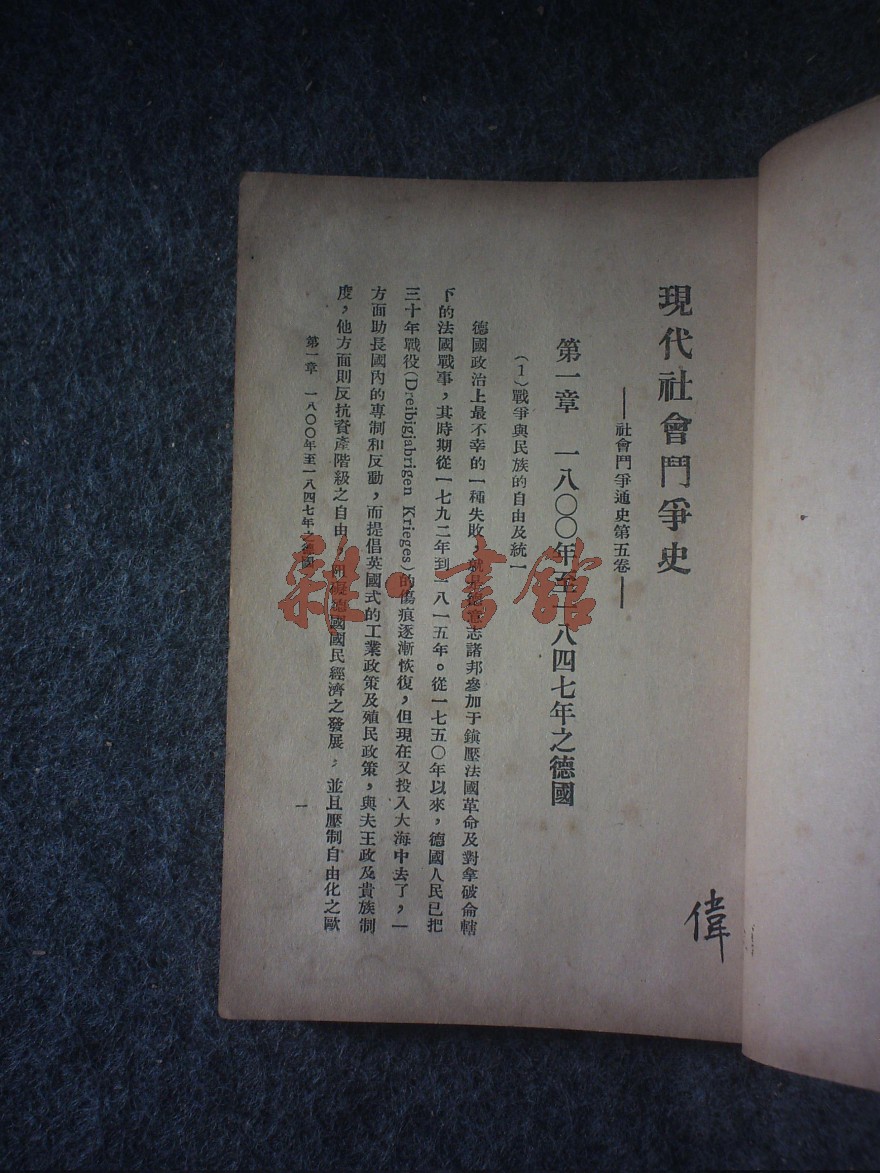 現代社會鬥爭史
——社會鬥爭通史第五卷——
第一章　一八〇〇年至一八四七年之德國
(1)戰爭與民族的自由及統一
德國政治上最不幸的一種失敗，就是德意志諸邦參加于鎭壓法國革命及對拿破侖轄
下的法國戰事，其時期從一七九二年到一八一五年。從一七五〇年以來，德國人民已把
三十年戰役(Dreibigjabrigen Krieges)的傷痕逐漸恢復，但現在又投入大海中去了，一
方面助長國內的專制和反動，而提倡英國式的工業政策及殖民政策，與夫王政及貴族制
度，他方面則反抗資產階級之自由，阻礙德國國民經濟之發展，並且壓制自由化之歐
第一章　一八〇〇年至一八四七年之德國
一
偉
雜·書館